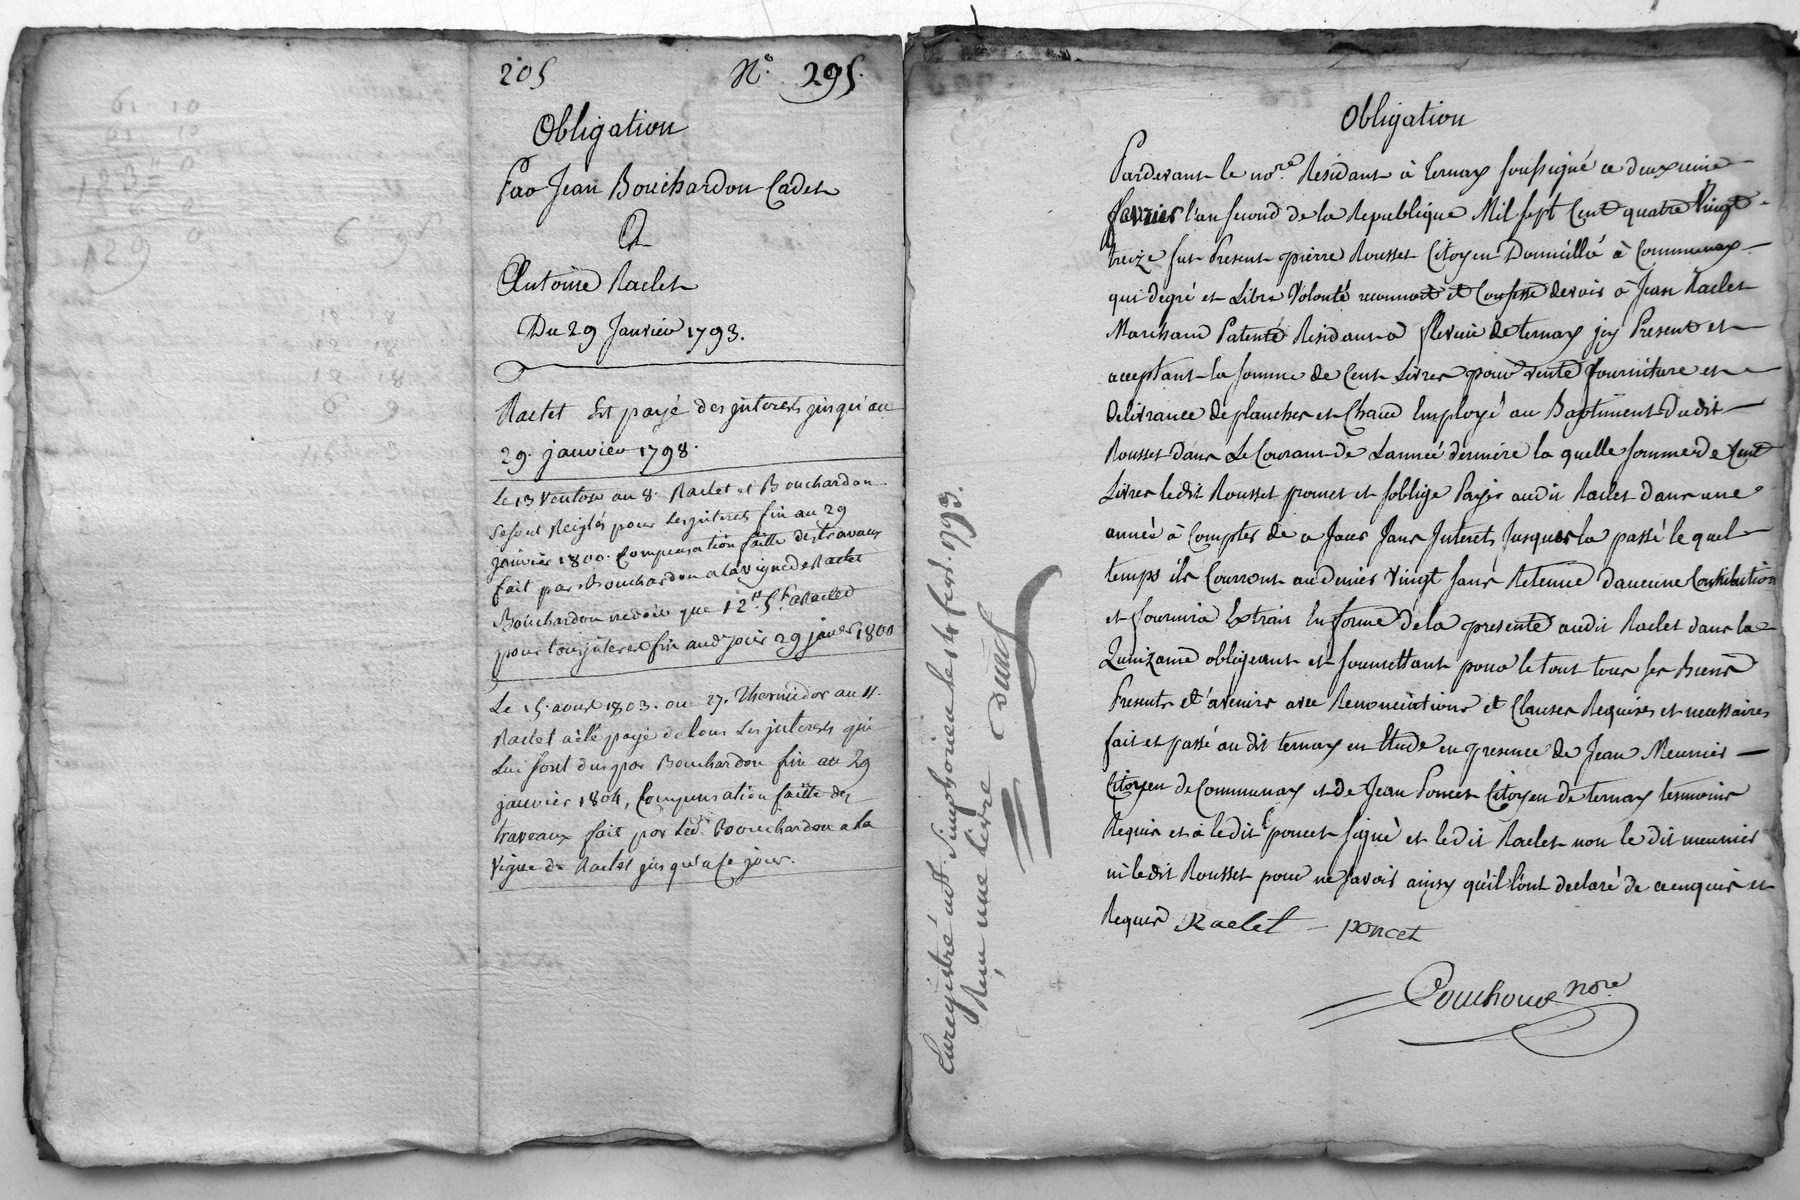 205 N° 295.
Obligation
Par Jean Bouchardon Cadet
A
Antoine Raclet
Du 29 Janvier 1793.
Raclet Est payé des jnterests jusqu'au
29. janvier 1798.
Le 13 Ventose an 8. Raclet et Bouchardon
se sont Reiglés pour les jnterets fin au 29
janvier 1800. Compensation faitte des travaux
fait par Bouchardon a la vigne de Raclet
Bouchardon redoit que 12# 5s a Raclet
pour tous jnterest fin aud jour 29 janvier 1800
Le 15 aoust 1803. ou 27. Thermidor an 11.
Raclet a été payé de tous les jnterests qui
lui sont dus par Bouchardon fin au 29
janvier 1804, Compensation faitte des
traveaux fait par led. Bouchardon a la
vigne de Raclet jusqu'a ce jour.
61 10
61 10
123 0
6 0
129 0
Enregistré a St Simphorien le 14 fevr. 1793.
Reçu une livre
Obligation
Pardevant le nore. Résidant à Ternay soussigné ce deuxieme
fevrier l'an second de la Republique Mil sept Cent quatre Vingt
treize fut Present pierre Rousset Citoyen Domicillié à Communay
qui de gré et Libre Volonté reconnoit et Confesse devoir à Jean Raclet
Marchand Patenté Residant a flevieu de ternay jcy Present et
acceptant la somme de Cent Livres pour vente fourniture et
Delivrance de planches et Chaud Employé au Baptiment Dudit
Rousset dans Le Courant de L'année derniere la quelle somme de Cent
Livres ledit Rousset promet et s'oblige Payer audit Raclet dans une
année à Compter de ce Jour sans Interets Jusques la passé le quel
temps ils Courront au denier Vingt sans Retenue d'aucune Contribution
et fournira Extrait En forme de la presente audit Raclet dans la
Quinzaine obligeant et soumettant pour le tout tous ses Biens
Presents et avenir avec Renonciations et Clauses Requises et necessaires
fait et passé audit ternay en Etude en presence de Jean Meunier
Citoyen de Communay et de Jean Poncet Citoyen de ternay tesmoins
Requis et à ledit poncet signé et ledit Raclet non le dit meunier
ni ledit Rousset pour ne savoir ainsy qu'il l'ont declaré de ce enquis et
Requis Raclet poncet
nore